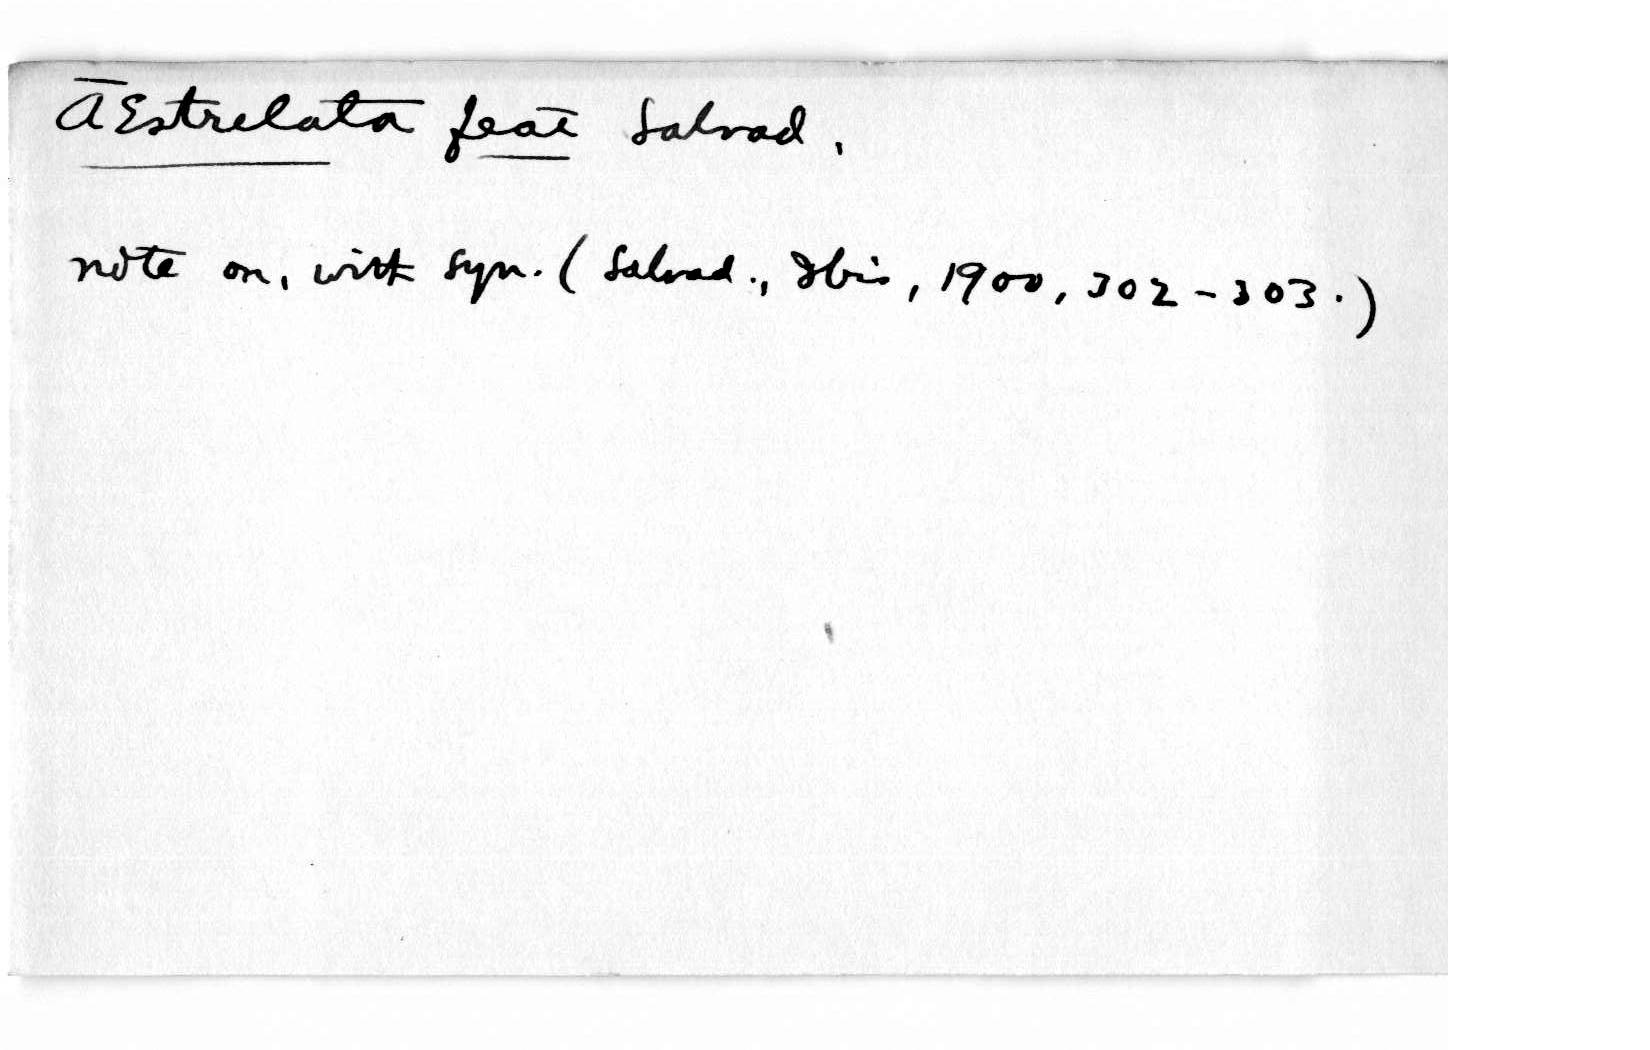 AEstrelata feae Salvad.
note on, with syn. (Salvad., Ibis, 1900, 302-303.)